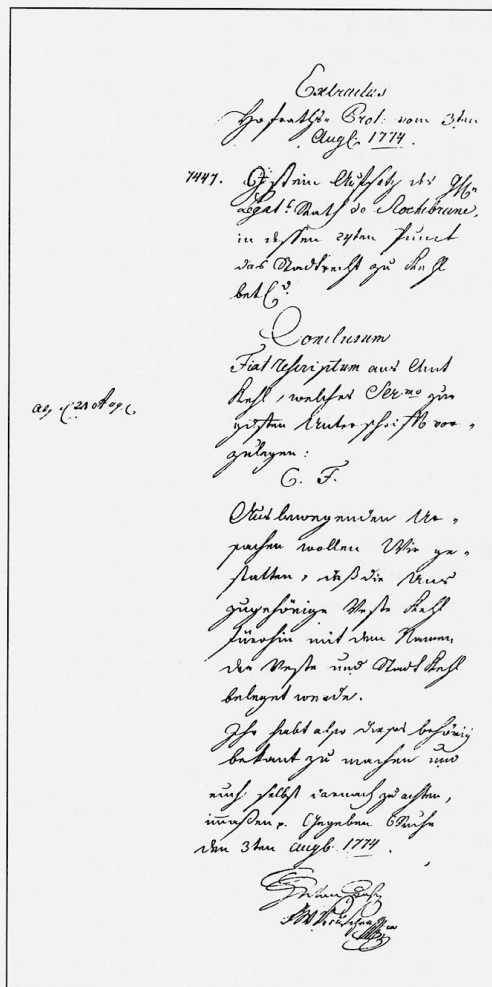 Extractus
Hofraths Prot. vom 3ten
Augl. 1774.
7447. Ist ein Aufsatz des
Legat. Rath de Rochebrune,
in dessen 24ten Punct
das Stadtrecht zu Kehl
bet
Conclusum
Fiat rescriptum ans Amt
Kehl, welches Sermo zur
gdsten Unterschrift vor-
zulegen:
C. F.
Aus bewegenden Ur-
sachen wollen Wir ge-
statten, daß die Uns
zugehörige Veste Kehl
fürohin mit dem Namen
der Veste und Stadt Kehl
beleget werde.
Ihr habt also dieses behörig
bekant zu machen und
euch selbst darnach zu achten,
immaßen p. Gegeben CRuhe
den 3ten Augl. 1774.
28 Aug.